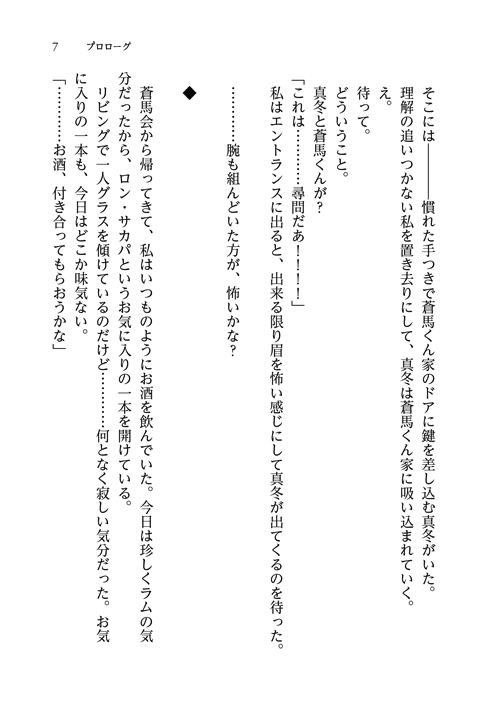 7 プロローグ
そこには――――慣れた手つきで蒼馬くん家のドアに鍵を差し込む真冬がいた。
理解の追いつかない私を置き去りにして、真冬は蒼馬くん家に吸い込まれていく。
え。
待って。
どういうこと。
真冬と蒼馬くんが？
「これは…………尋問だあ！！！！」
私はエントランスに出ると、出来る限り眉を怖い感じにして真冬が出てくるのを待った。
…………腕も組んどいた方が、怖いかな？
◆
蒼馬会から帰ってきて、私はいつものようにお酒を飲んでいた。今日は珍しくラムの気
分だったから、ロン・サカパというお気に入りの一本を開けている。
リビングで一人グラスを傾けているのだけど…………何となく寂しい気分だった。お気
に入りの一本も、今日はどこか味気ない。
「…………お酒、付き合ってもらおうかな」